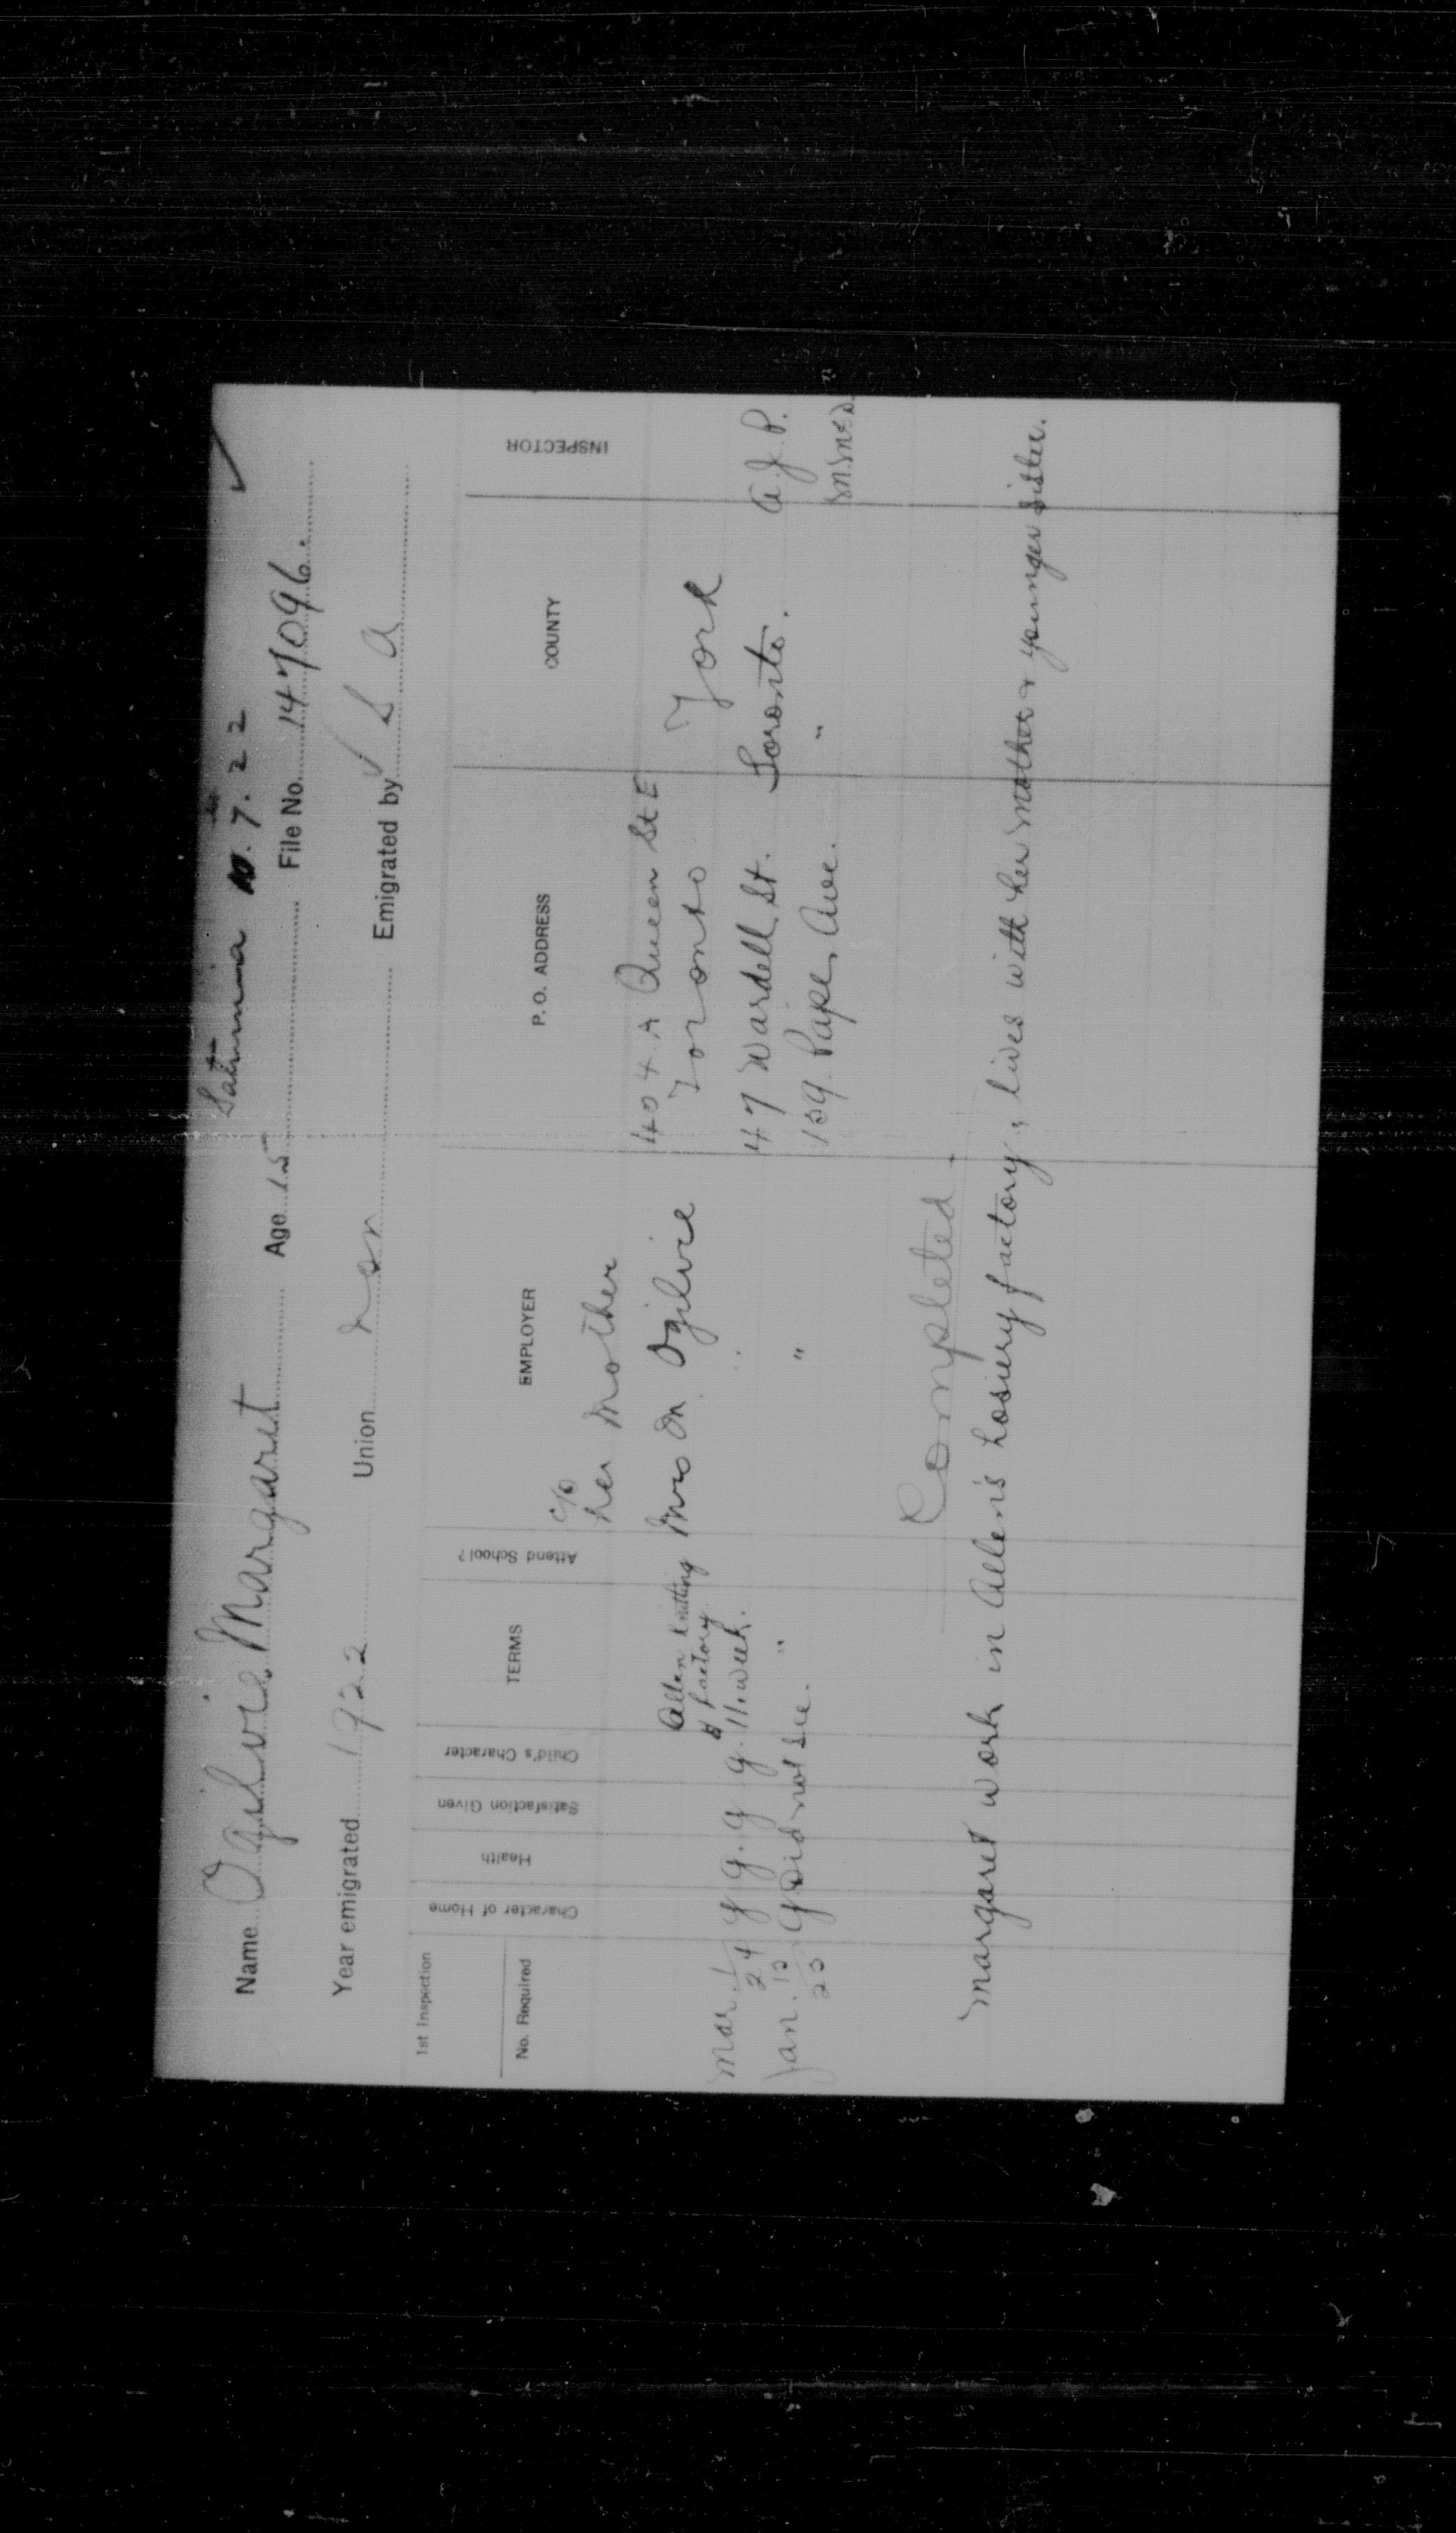 Saturnia 10. 7. 22
Name Ogilvie Margaret Age 15 File No. 147096.
Year emigrated 1922 Union non Emigrated by S A
1st Inspection
No. Required Character of Home Health Satisfaction Given Child's Character TERMS Attend School? EMPLOYER P. O. ADDRESS COUNTY INSPECTOR
c/o
her mother 404 A Queen St E
Allen Knitting Mrs M. Ogilvie Toronto York
factory
Mar. 1/24 g g. g g. 11. week. " 47 Wardell St. Toronto. A. J. P.
Jan. 13/25 g Did not see. " " 109 Pape Ave. "
Completed.
Margaret work in Allen's hosiery factory, lives with her mother & younger sister.